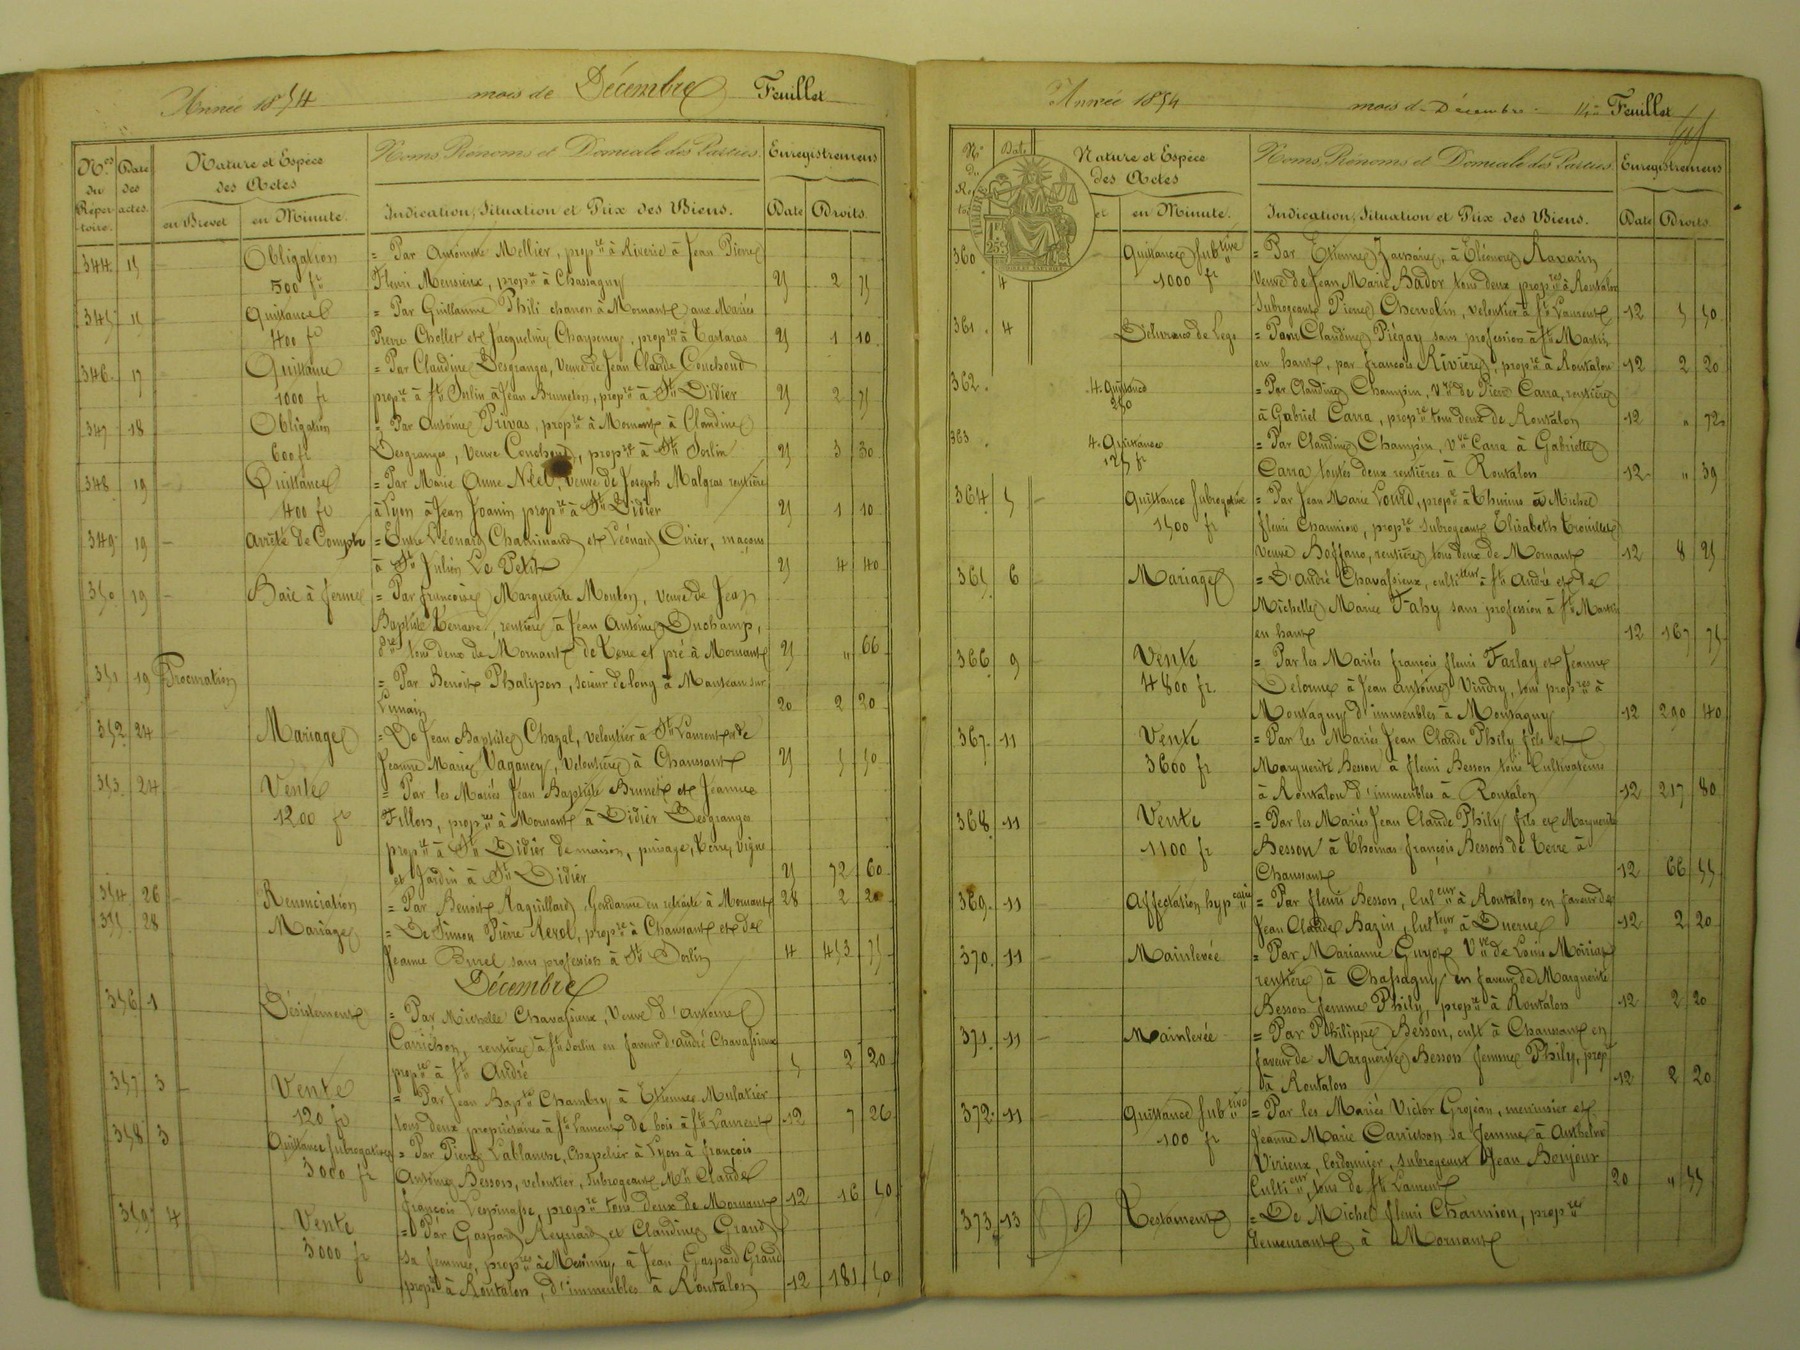 Année 1854 mois de Décembre Feuillet
Nos du Répertoire. Date des actes. Nature et Espèce des Actes en Brevet en Minute. Noms, Prénoms et Domicile des Parties. Indication, Situation et Prix des Biens. Enregistremens Date Droits.
344 15 Obligation = Par Antoinette Mellier, propre à Riverie à Jean Pierre
500 fr Fleuri Meusieux, propre à Chassagny 25 2 75
345 15 Quittance = Par Guillaume Phili charon à Mornant aux Mariés
400 fr Pierre Chollet et Jacqueline Charpenay, propres à Tartaras 25 1 10
346 17 Quittance = Par Claudine Desgranges, Veuve de Jean Claude Couchoud
1000 fr propre à St Sorlin à Jean Bruneton, propre à St Didier 25 2 75
347 18 Obligation = Par Antoine Privas, propre à Mornant à Claudine
600 fr Desgranges, Veuve Couchoud, propre à St Sorlin 25 3 30
348 19 Quittance = Par Marie Anne Veuve de Joseph Malgras rentière
400 fr à Lyon à Jean Joanin propre à St Didier 25 1 10
349 19 Arrêté de Compte = Entre Léonard Chaminaud et Léonard Cirier, maçons
à St Julien Le Petit 25 4 40
350 19 Bail à ferme = Par françoise Marguerite Mouton, veuve de Jean
Baptiste rentière à Jean Antoine Duchamp,
pre tous deux de Mornant de Terre et pré à Mornant 25 " 66
351 19 Procuration = Par Benoit Phalipon, scieur de long à
20 2 20
352 24 Mariage = De Jean Baptiste Chazal, veloutier à St Laurent et de
Jeanne Marie Vaganey, Veloutière à Chaussant 25 5 50
353 24 Vente = Par les Mariés Jean Baptiste Brunet et Jeanne
1200 fr Fillon, propres à Mornant à Didier Desgranges
propre à St Didier de maison, puisage, Terre, Vigne
et Jardin à St Didier 25 72 60
354 26 Renonciation = Par Benoit Raquillard, Gendarme en retraite à Mornant 28 2 20
355 28 Mariage = De Simon Pierre Revol, propre à Chaussant et de
Jeanne Burel sans profession à St Sorlin 4 453 75
Décembre
356 1 Désistement = Par Michelle Chavassieux, Veuve d'Antoine
Carrichon, rentière à St Sorlin en faveur d'andré Chavassieux
propre à St André 5 2 20
357 3 Vente = Par Jean Bapte Chambry à Etienne Mulatier
120 fr tous deux propriétaires à St Laurent de bois à St Laurent 12 7 26
358 3 Quittance Subrogative = Par Pierre Lablanche, Chapelier à Lyon à françois
3000 fr Antoine Besson, veloutier, Subrogeant Mr Claude
françois Lespinasse, propre tous deux de Mornant 12 16 50
359 4 Vente = Par Gaspard Reynard et Claudine Grand
3000 fr sa femme, propres à Messimy à Jean Gaspard Grand
propre à Rontalon, d'immeubles à Rontalon 12 181 50
Année 1854 mois de Décembre Feuillet
No du Date Nature et Espèce des Actes en Minute. Noms, Prénoms et Domicile des Parties. Indication, Situation et Prix des Biens. Enregistremens Date Droits.
TIMBRE 1F 25C
360 4 Quittance Subtive = Par Etienne Zacharie, à Eléonore Ravarin
1000 fr Veuve de Jean Marie Bador tous deux propres à Rontalon
Subrogeant Pierre Chervolin, veloutier à St Laurent 12 5 50
361 4 Délivrance de Legs = Par Claudine Piégay sans profession à St Martin
en haut, par françois Rivière, propre à Rontalon 12 2 20
362 4 Quittance = Par Claudine Champin, Vve de Pierre Carra, rentière
250 à Gabriel Carra, propre tous deux de Rontalon 12 " 72
363 4 Quittance = Par Claudine Champin, Vve Carra à Gabrielle
125 fr Carra toutes deux rentières à Rontalon 12 " 39
364 5 Quittance Subrogative = Par Jean Marie Lourd, propre à Thurins à Michel
1500 fr fleuri Charmion, propre Subrogeant Elisabeth Trouillet
Veuve Boffano, rentière tous deux de Mornant 12 8 25
365 6 Mariage = D'André Chavassieux, cultiteur à St André et de
Michelle Marie Fahy sans profession à St Martin
en haut 12 167 75
366 9 Vente = Par les Mariés françois fleuri Farlay et Jeanne
4800 fr Delorme à Jean Antoine Vindry, tous propres à
Montagny d'immeubles à Montagny 12 290 40
367 11 Vente = Par les Mariés Jean Claude Phily fils et
3600 fr Marguerite Besson à fleuri Besson tous Cultivateurs
à Rontalon d'immeubles à Rontalon 12 217 80
368 11 Vente = Par les Mariés Jean Claude Phily fils et Marguerite
1100 fr Besson à Thomas françois Besson de Terre à
Chaussant 12 66 55
369 11 Affectation hypcaire = Par fleuri Besson, Culteur à Rontalon en faveur de
Jean Claude Bazin, Culteur à Duerne 12 2 20
370 11 Mainlevée = Par Marianne Guyot Vve de Louis
rentière à Chassagny en faveur de Marguerite
Besson femme Phily, propre à Rontalon 12 2 20
371 11 Mainlevée = Par Philippe Besson, cult à Chaussant en
faveur de Marguerite Besson femme Phily, prop
à Rontalon 12 2 20
372 11 Quittance Subtive = Par les Mariés Victor Grojean, menuisier et
100 fr Jeanne Marie Carrichon sa femme à Anthelme
Virieux, Cordonnier, subrogeant Jean Bonjour
Cultieur, tous de St Laurent 20 " 55
373 13 Testament = De Michel fleuri Charmion, propre
demeurant à Mornant